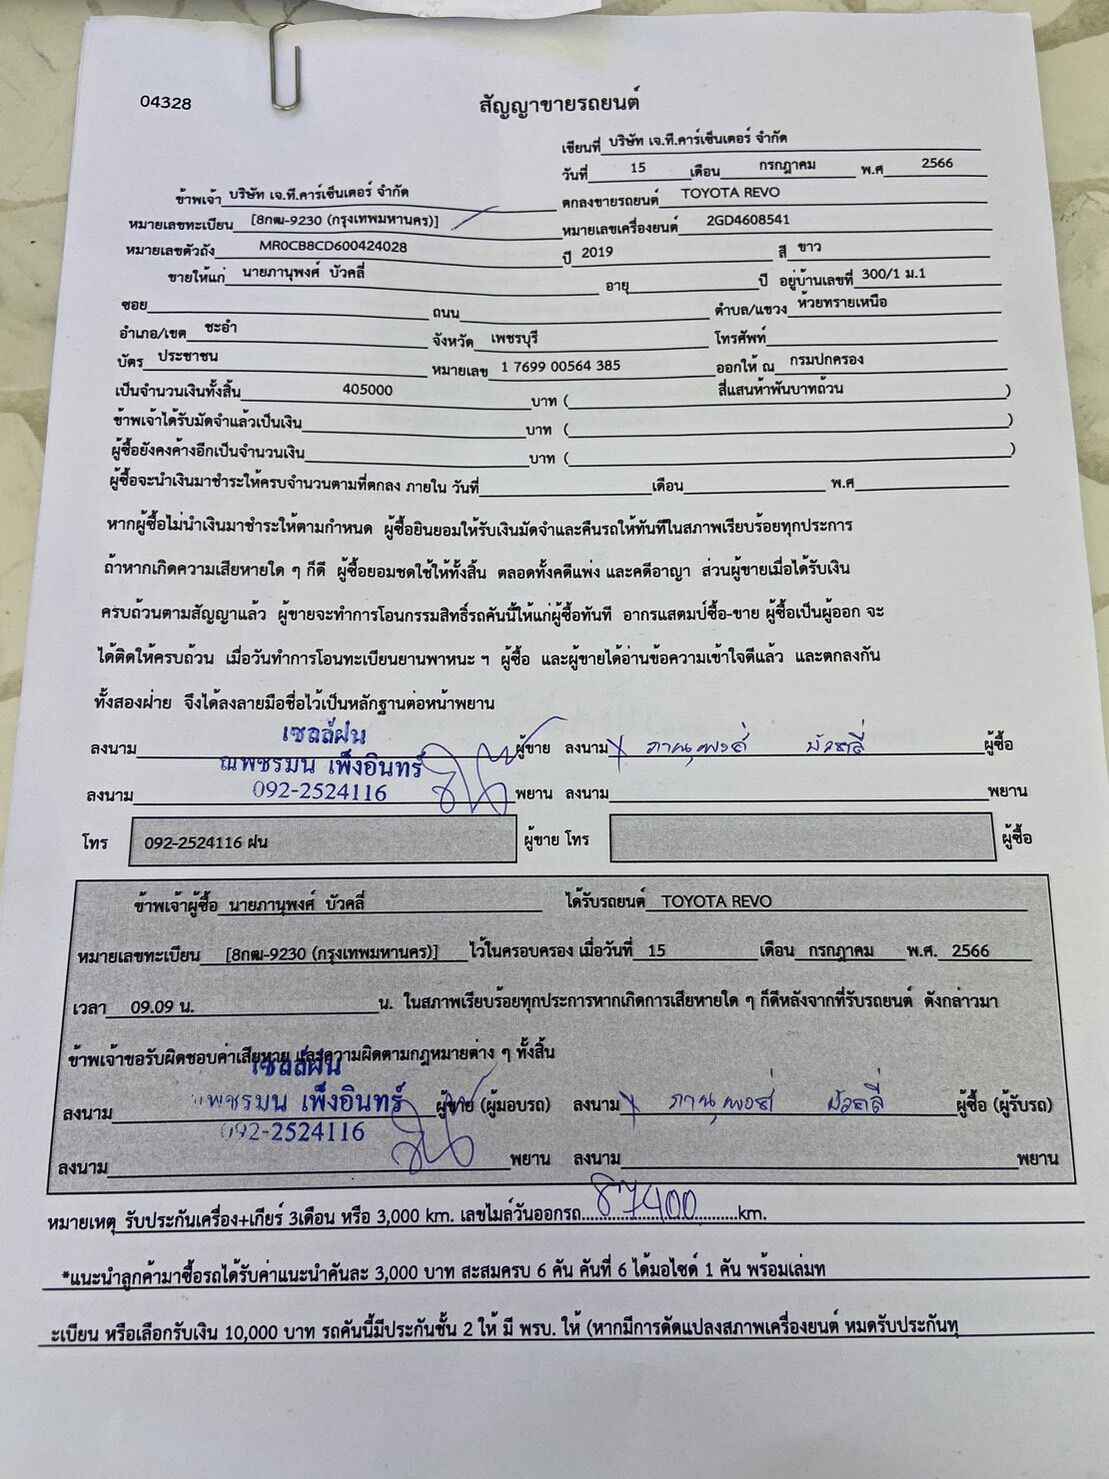 04328
สัญญาขายรถยนต์
เขียนที่ บริษัท เจ.ที.คาร์เซ็นเตอร์ จำกัด
วันที่ 15 เดือน กรกฎาคม พ.ศ 2566
ข้าพเจ้า บริษัท เจ.ที.คาร์เซ็นเตอร์ จำกัด ตกลงขายรถยนต์ TOYOTA REVO
หมายเลขทะเบียน [8กฒ-9230 (กรุงเทพมหานคร)] หมายเลขเครื่องยนต์ 2GD4608541
หมายเลขตัวถัง MR0CB8CD600424028 ปี 2019 สี ขาว
ขายให้แก่ นายภานุพงศ์ บัวคลี่ อายุ ปี อยู่บ้านเลขที่ 300/1 ม.1
ซอย ถนน ตำบล/แขวง ห้วยทรายเหนือ
อำเภอ/เขต ชะอำ จังหวัด เพชรบุรี โทรศัพท์
บัตร ประชาชน หมายเลข 1 7699 00564 385 ออกให้ ณ กรมปกครอง
เป็นจำนวนเงินทั้งสิ้น 405000 บาท ( สี่แสนห้าพันบาทถ้วน )
ข้าพเจ้าได้รับมัดจำแล้วเป็นเงิน บาท ( )
ผู้ซื้อยังคงค้างอีกเป็นจำนวนเงิน บาท ( )
ผู้ซื้อจะนำเงินมาชำระให้ครบจำนวนตามที่ตกลง ภายใน วันที่ เดือน พ.ศ
หากผู้ซื้อไม่นำเงินมาชำระให้ตามกำหนด ผู้ซื้อยินยอมให้รับเงินมัดจำและคืนรถให้ทันทีในสภาพเรียบร้อยทุกประการ
ถ้าหากเกิดความเสียหายใด ๆ ก็ดี ผู้ซื้อยอมชดใช้ให้ทั้งสิ้น ตลอดทั้งคดีแพ่ง และคดีอาญา ส่วนผู้ขายเมื่อได้รับเงิน
ครบถ้วนตามสัญญาแล้ว ผู้ขายจะทำการโอนกรรมสิทธิ์รถคันนี้ให้แก่ผู้ซื้อทันที อากรแสตมป์ซื้อ-ขาย ผู้ซื้อเป็นผู้ออก จะ
ได้ติดให้ครบถ้วน เมื่อวันทำการโอนทะเบียนยานพาหนะ ฯ ผู้ซื้อ และผู้ขายได้อ่านข้อความเข้าใจดีแล้ว และตกลงกัน
ทั้งสองฝ่าย จึงได้ลงลายมือชื่อไว้เป็นหลักฐานต่อหน้าพยาน
เซลล์ฝน
ลงนาม ผู้ขาย ลงนาม ภานุพงศ์ บัวคลี่ ผู้ซื้อ
ณพชรมน เพ็งอินทร์
092-2524116
ลงนาม พยาน ลงนาม พยาน
โทร 092-2524116 ฝน ผู้ขาย โทร ผู้ซื้อ
ข้าพเจ้าผู้ซื้อ นายภานุพงศ์ บัวคลี่ ได้รับรถยนต์ TOYOTA REVO
หมายเลขทะเบียน [8กฒ-9230 (กรุงเทพมหานคร)] ไว้ในครอบครอง เมื่อวันที่ 15 เดือน กรกฎาคม พ.ศ. 2566
เวลา 09.09 น. น. ในสภาพเรียบร้อยทุกประการหากเกิดการเสียหายใด ๆ ก็ดีหลังจากที่รับรถยนต์ ดังกล่าวมา
ข้าพเจ้าขอรับผิดชอบค่าเสียหาย และความผิดตามกฎหมายต่าง ๆ ทั้งสิ้น
เซลล์ฝน
ณพชรมน เพ็งอินทร์
ลงนาม ผู้ขาย (ผู้มอบรถ) ลงนาม ภานุพงศ์ บัวคลี่ ผู้ซื้อ (ผู้รับรถ)
092-2524116
ลงนาม พยาน ลงนาม พยาน
หมายเหตุ รับประกันเครื่อง+เกียร์ 3เดือน หรือ 3,000 km. เลขไมล์วันออกรถ 87400 km.
*แนะนำลูกค้ามาซื้อรถได้รับค่าแนะนำคันละ 3,000 บาท สะสมครบ 6 คัน คันที่ 6 ได้มอไซด์ 1 คัน พร้อมเล่มท
ะเบียน หรือเลือกรับเงิน 10,000 บาท รถคันนี้มีประกันชั้น 2 ให้ มี พรบ. ให้ (หากมีการดัดแปลงสภาพเครื่องยนต์ หมดรับประกันทุ